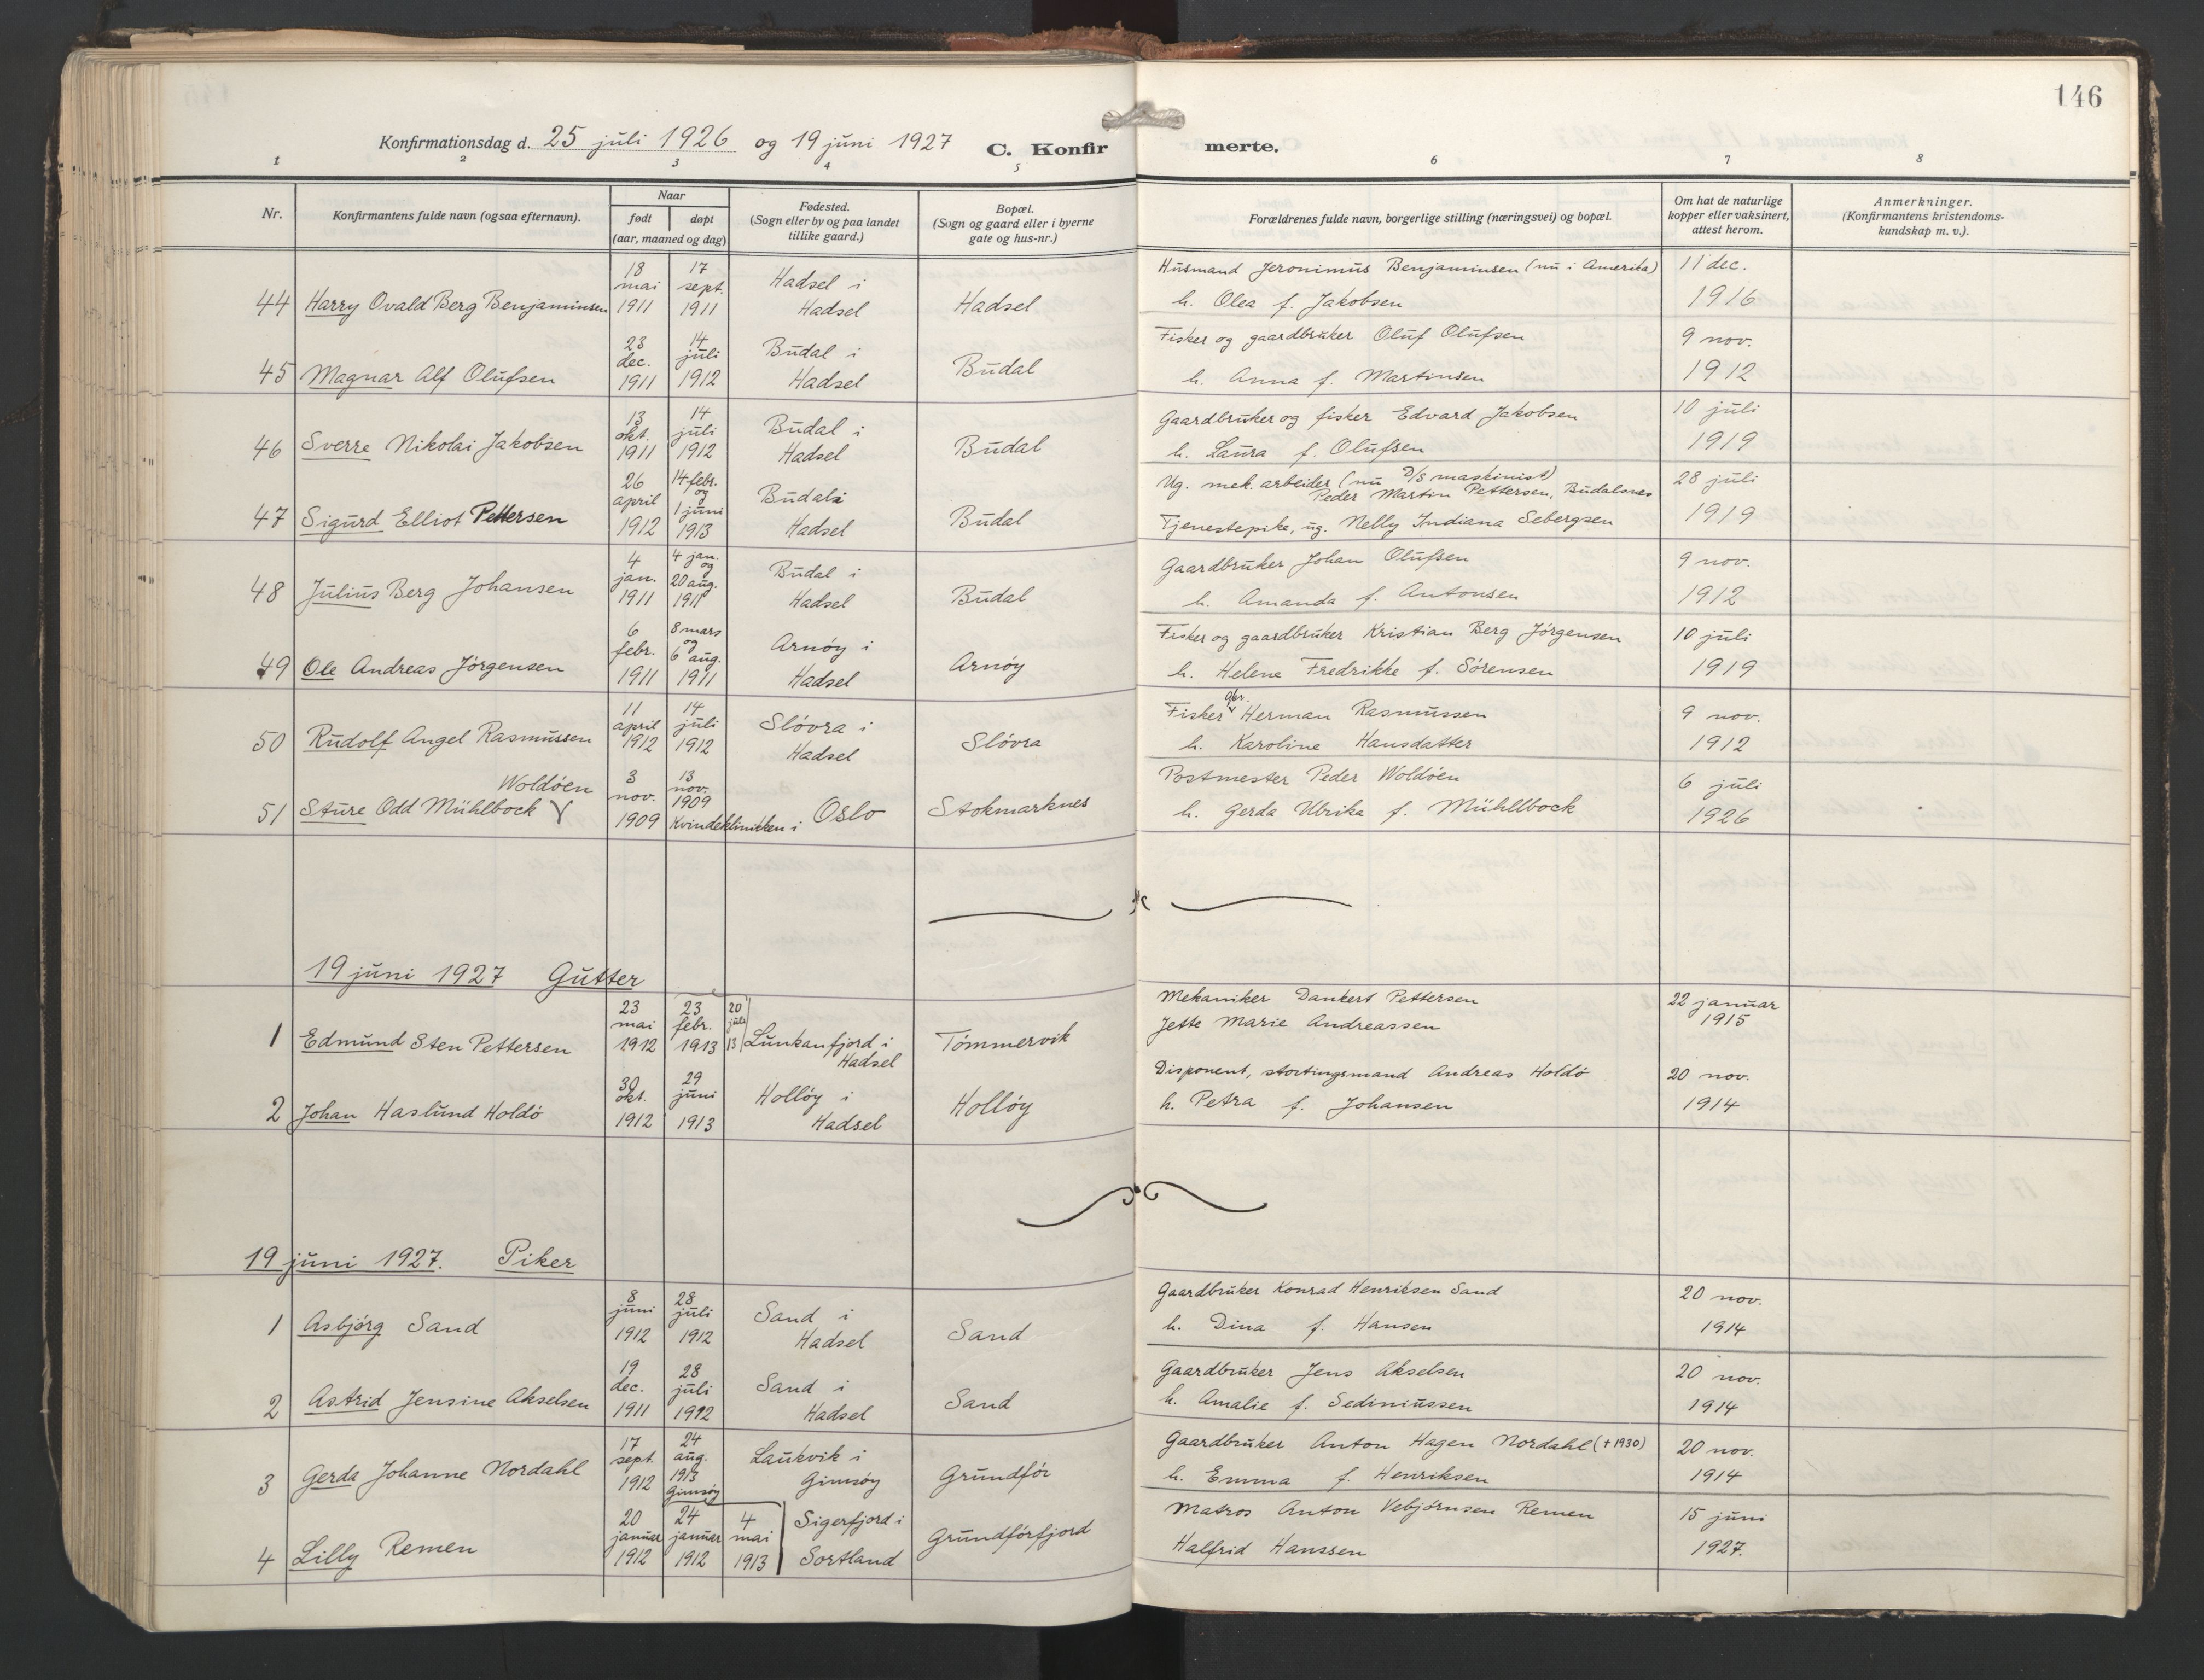 146
Konfirmationsdag d. 25 juli 1926 og 19 juni 1927 C. Konfirmerte.
1 2 3 4 5 6 7 8
Nr.
Konfirmantens fulde navn (ogsaa efternavn).
Naar
født døpt
(aar, maaned og dag)
Fødested.
(Sogn eller by og paa landet
tillike gaard.)
Bopæl.
(Sogn og gaard eller i byerne
gate og hus-nr.)
Forældrenes fulde navn, borgerlige stilling (næringsvei) og bopæl.
Om hat de naturlige
kopper eller vaksinert,
attest herom.
Anmerkninger.
(Konfirmantens kristendoms-
kundskap m. v.).
44 Harry Ovald Berg Benjaminsen 18 mai 1911 17 sept. 1911 Hadsel i Hadsel Hadsel Husmand Jeronimus Benjaminsen (nu i Amerika) 11 dec.
h. Olea f. Jakobsen 1916
45 Magnar Alf Olufsen 23 dec. 1911 14 juli 1912 Budal i Hadsel Budal Fisker og gaardbruker Oluf Olufsen 9 nov.
h. Anna f. Martinsen 1912
46 Sverre Nikolai Jakobsen 13 okt. 1911 14 juli 1912 Budal i Hadsel Budal Gaardbruker og fisker Edvard Jakobsen 10 juli
h. Laura f. Olufsen 1919
47 Sigurd Elliot Pettersen 26 april 1912 14 febr. og 1 juni 1913 Budal i Hadsel Budal Ug. mek. arbeider (nu D/S maskinist) 28 juli
Peder Martin Pettersen, Budalsnes
Tjenestepike, ug. Nelly Indiana Sebergsen 1919
48 Julius Berg Johansen 4 jan. 1911 4 jan. og 20 aug. 1911 Budal i Hadsel Budal Gaardbruker Johan Olufsen 9 nov.
h. Amanda f. Antonsen 1912
49 Ole Andreas Jörgensen 6 febr. 1911 8 mars og 6 aug. 1911 Arnöy i Hadsel Arnöy Fisker og gaardbruker Kristian Berg Jörgensen 10 juli
h. Helene Fredrikke f. Sörensen 1919
50 Rudolf Angel Rasmussen 11 april 1912 14 juli 1912 Slóvra i Hadsel Slóvra Fisker gbr. Herman Rasmussen 9 nov.
h. Karoline Hansdatter 1912
51 Sture Odd Mühlbock Woldöen 3 nov. 1909 13 nov. 1909 Kvindeklinikken i Oslo Stokmarknes Postmester Peder Woldöen 6 juli
h. Gerda Ulrika f. Mühllbock 1926
19 juni 1927 Gutter
1 Edmund Sten Pettersen 23 mai 1912 23 febr. 1913 20 juli 13 Lunkanfjord i Hadsel Tömmervik Mekaniker Dankert Pettersen 22 januar
Jette Marie Andreassen 1915
2 Johan Haslund Holdö 30 okt. 1912 29 juni 1913 Hollöy i Hadsel Hollöy Disponent, stortingsmand Andreas Holdö 20 nov.
h. Petra f. Johansen 1914
19 juni 1927. Piker
1 Asbjörg Sand 8 juni 1912 28 juli 1912 Sand i Hadsel Sand Gaardbruker Konrad Henriksen Sand 20 nov.
h. Dina f. Hansen 1914
2 Astrid Jensine Akselsen 19 dec. 1911 28 juli 1912 Sand i Hadsel Sand Gaardbruker Jens Akselsen 20 nov.
h. Amalie f. Sediniussen 1914
3 Gerda Johanne Nordahl 17 sept. 1912 24 aug. 1913 Gimsöy Laukvik i Gimsöy Grundför Gaardbruker Anton Hagen Nordahl (+1930) 20 nov.
h. Emma f. Henriksen 1914
4 Lilly Remen 20 januar 1912 24 januar 1912 4 mai 1913 Sigerfjord i Sortland Grundförfjord Matros Anton Vebjörnsen Remen 15 juni
Halfrid Hanssen 1927.